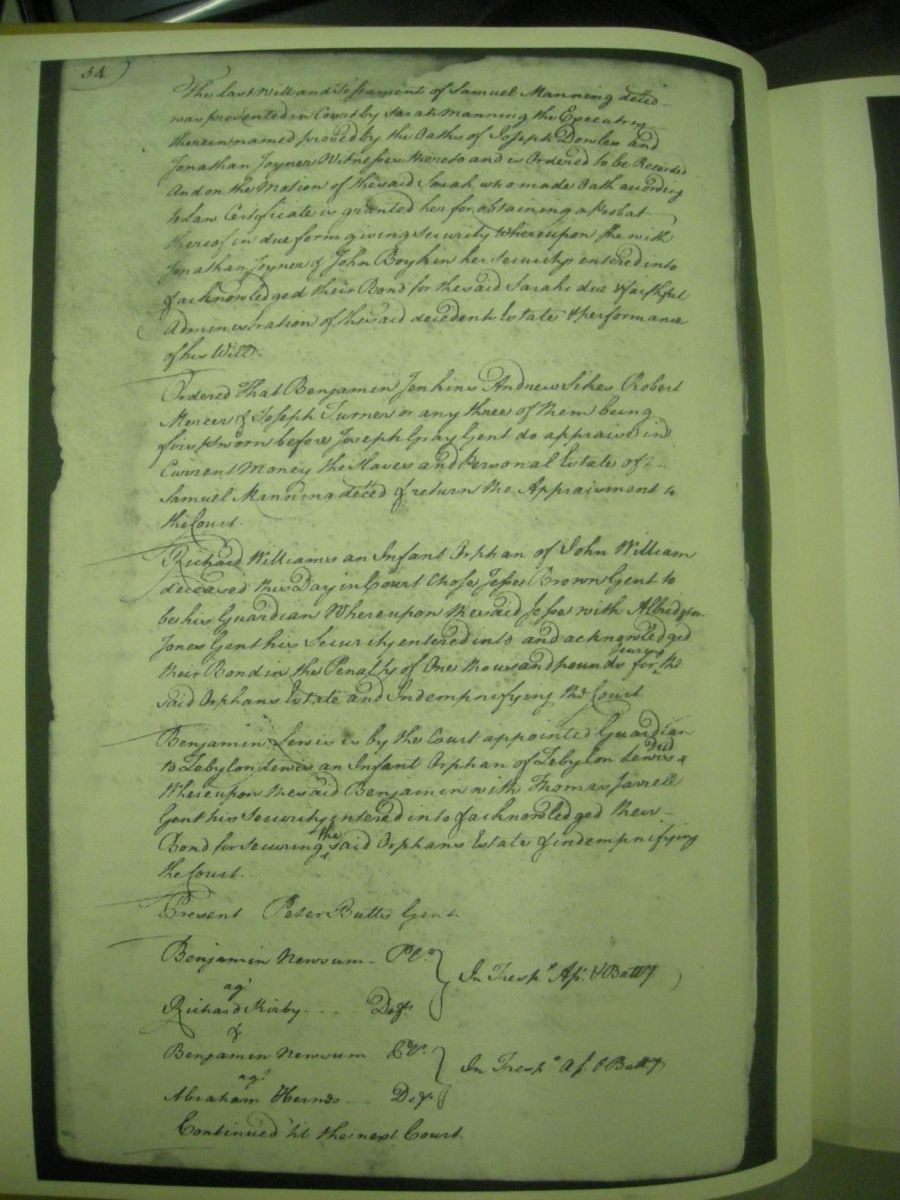 54
The last Will and Testament of Samuel Manning deced
was presented in Court by Sarah Manning the Executrix
therein named proved by the Oaths of Joseph Dowles and
Jonathan Joyner Witnesses thereto and is Ordered to be Recorded
And on the Motion of the said Sarah who made Oath according
to Law Certificate is granted her for obtaining a Probat
thereof in due form giving Security Whereupon she with
Jonathan Joyner & John Boykin her Securitys entered into
& acknowledged their Bond for the said Sarahs due & faithful
Administration of the said decedents Estate & performance
of his Will.
Ordered that Benjamin Jenkins Andrew Sikes Robert
Mercer & Joseph Turner or any three of them being
first sworn before Joseph Gray Gent do appraise in
Current Money the Slaves and Personal Estate of
Samuel Manning deced & return the Appraisment to
the Court.
Richard Williams an Infant Orphan of John William
deceased this Day in Court Chose Jesse Brown Gent to
be his Guardian Whereupon the said Jesse with Albridgton
Jones Gent his Security entered into and acknowledged
their Bond in the Penalty of One thousand pounds for the
said Orphans Estate and Indempnifying the Court
Benjamin Lewis is by the Court appointed Guardian
to Zebylon Lewis an Infant Orphan of Zebylon Lewis Decd
Whereupon the said Benjamin with Thomas Jarrell
Gent his Security entered into & acknowledged their
Bond for Securing the said Orphans Estate & indempnifying
the Court.
Present Peter Butts Gent
Benjamin Newsum Pl.
agt
Richard Kirby Deft
In Tresps. As. & Batty
&
Benjamin Newsum Pl.
agt
Abraham Deft
In Tresps. As. & Batty
Continued 'til the next Court